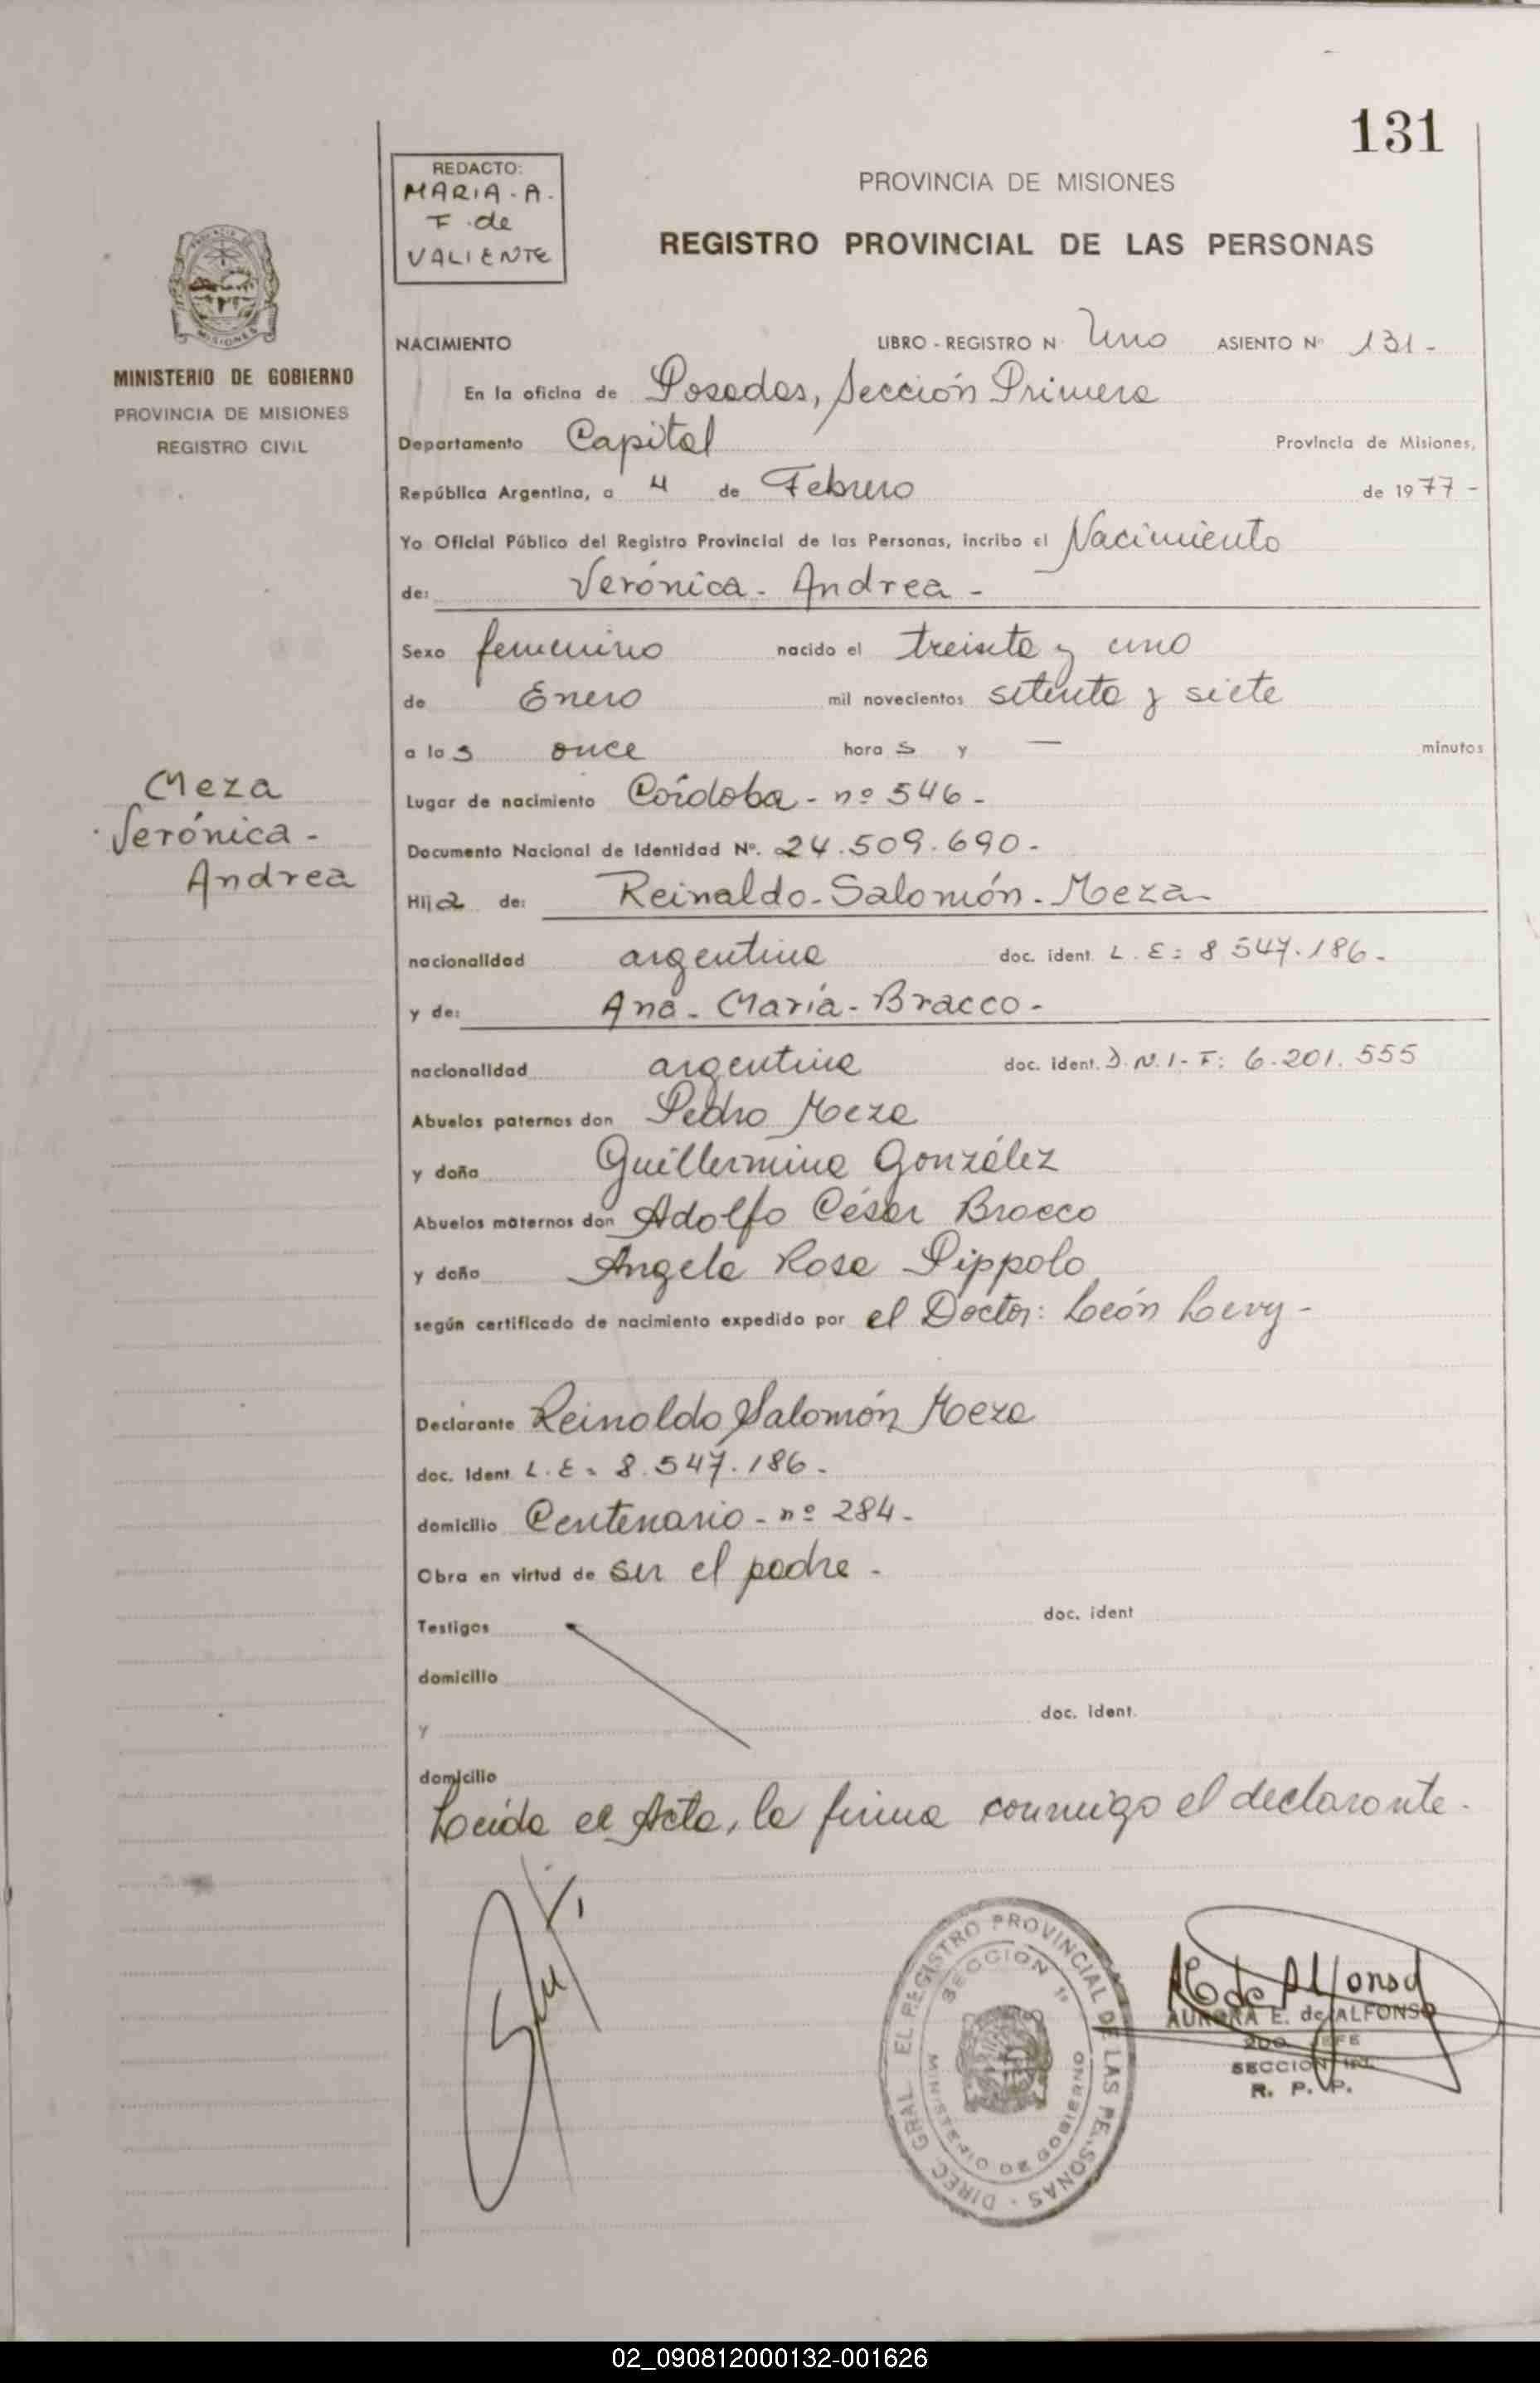 131
REDACTO:
MARIA - A.
F. de
VALIENTE
PROVINCIA DE MISIONES
REGISTRO PROVINCIAL DE LAS PERSONAS
MINISTERIO DE GOBIERNO
PROVINCIA DE MISIONES
REGISTRO CIVIL
NACIMIENTO LIBRO - REGISTRO N Uno ASIENTO Nº 131-
En la oficina de Posadas, Sección Primera
Departamento Capital Provincia de Misiones,
República Argentina, a 4 de Febrero de 1977-
Yo Oficial Público del Registro Provincial de las Personas, incribo el Nacimiento
de: Verónica - Andrea -
Sexo femenino nacido el treinta y uno
de Enero mil novecientos setenta y siete
a las once horas y — minutos
Meza
Verónica -
Andrea
Lugar de nacimiento Córdoba - nº 546 -
Documento Nacional de Identidad Nº. 24.509.690 -
Hija de: Reinaldo - Salomón - Meza -
nacionalidad argentina doc. ident. L. E: 8 547.186 -
y de: Ana - María - Bracco -
nacionalidad argentina doc. ident. D.N.I - F: 6.201.555
Abuelos paternos don Pedro Meza
y doña Guillermina González
Abuelos maternos don Adolfo César Bracco
y doña Angela Rosa Pippolo
según certificado de nacimiento expedido por el Doctor: León Levy -
Declarante Reinaldo Salomón Meza
doc. Ident L. E. 8.547.186 -
domicilio Centenario - nº 284 -
Obra en virtud de ser el padre -
Testigos doc. ident
domicilio
y doc. ident.
domicilio
Leída el Acta, la firma conmigo el declarante.
DIREC. GRAL. EL REGISTRO PROVINCIAL DE LAS PERSONAS
SECCION 1º
MINISTERIO DE GOBIERNO
A E de Alfonso
AURORA E. de ALFONSO
2DO. JEFE
SECCION 1ra.
R. P. P.
02_090812000132-001626